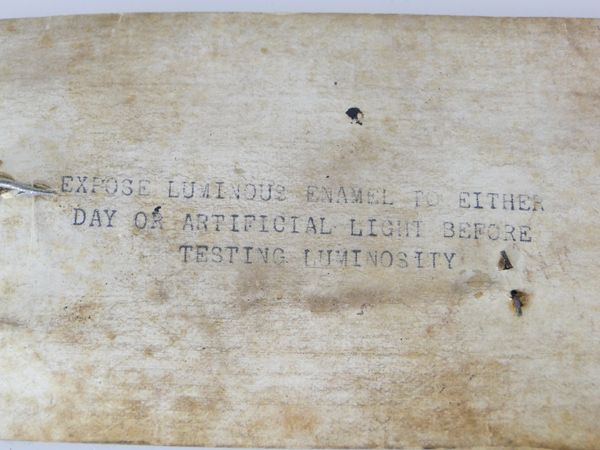 EXPOSE LUMINOUS ENAMEL TO EITHER
DAY OR ARTIFICIAL LIGHT BEFORE
TESTING LUMINOSITY